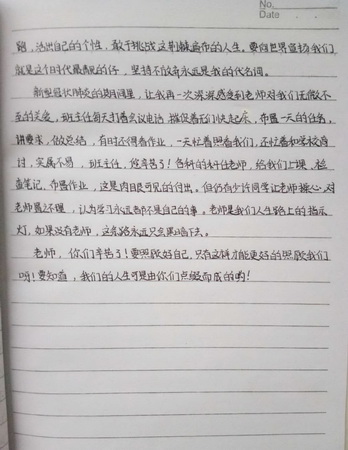 No.
Date
路，活出自己的个性，敢于挑战这荆棘遍布的人生。要向世界宣扬我们
就是这个时代最靓的仔，坚持不放弃永远是我的代名词。
新型冠状肺炎的期间里，让我再一次深深感受到老师对我们无微不
至的关爱，班主任每天打着会议电话，催促着我们快起床，布置一天的任务，
讲要求，做总结，有时还得看作业，一天忙着照看我们，还忙着和学校商
讨，实属不易，班主任，您辛苦了！各科的科任老师，给我们上课，检
查笔记，布置作业，这是肉眼可见的付出。但仍有少许同学让老师操心，对
老师置之不理，认为学习永远都不是自己的事。老师是我们人生路上的指示
灯，如果没有老师，这条路永远只会黑暗下去。
老师，你们辛苦了！要照顾好自己，只有这样才能更好的照顾我们
呀！要知道，我们的人生可是由你们点缀而成的哟！